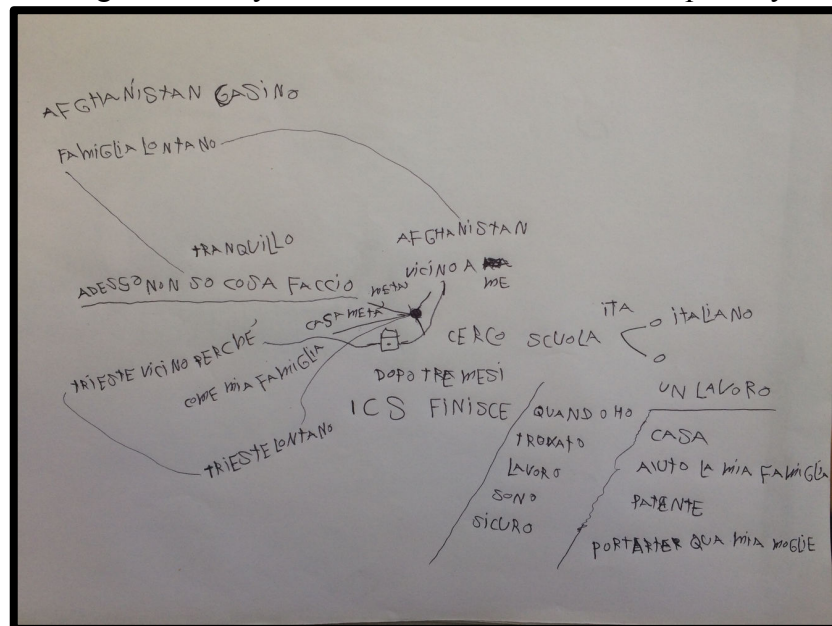 AFGHANISTAN CASINO
FAMIGLIA LONTANO
AFGHANISTAN
VICINO A ME
TRANQUILLO
ADESSO NON SO COSA FACCIO
METÀ
CASA METÀ
TRIESTE VICINO PERCHÉ
COME MIA FAMIGLIA
TRIESTE LONTANO
CERCO SCUOLA
ITA
ITALIANO
UN LAVORO
DOPO TRE MESI
ICS FINISCE
QUANDO HO
TROVATO
LAVORO
SONO
SICURO
CASA
AIUTO LA MIA FAMIGLIA
PATENTE
QUA MIA MOGLIE